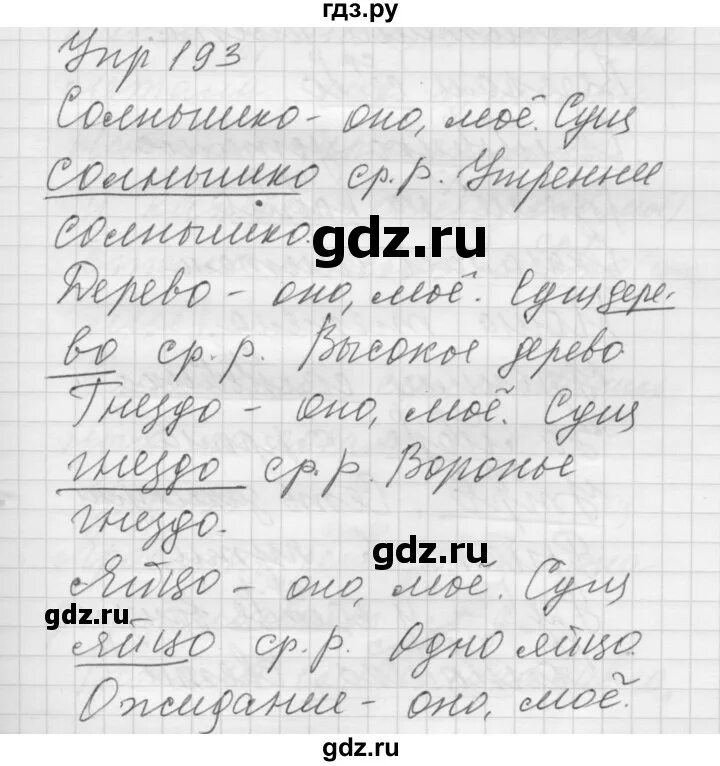 гдз.ру
Упр 193
Солнышко - оно, моё. Сущ
солнышко ср.р. Утреннее
солнышко.
gdz.ru
Дерево - оно, моё. Сущ дере-
во ср.р. Высокое дерево
Гнездо - оно, моё. Сущ
гнездо ср.р. Воронье
гнездо.
gdz.ru
Яйцо - оно, моё. Сущ
gdz.ru
яйцо ср.р. Одно яйцо.
Ожидание - оно, моё.
gdz.ru